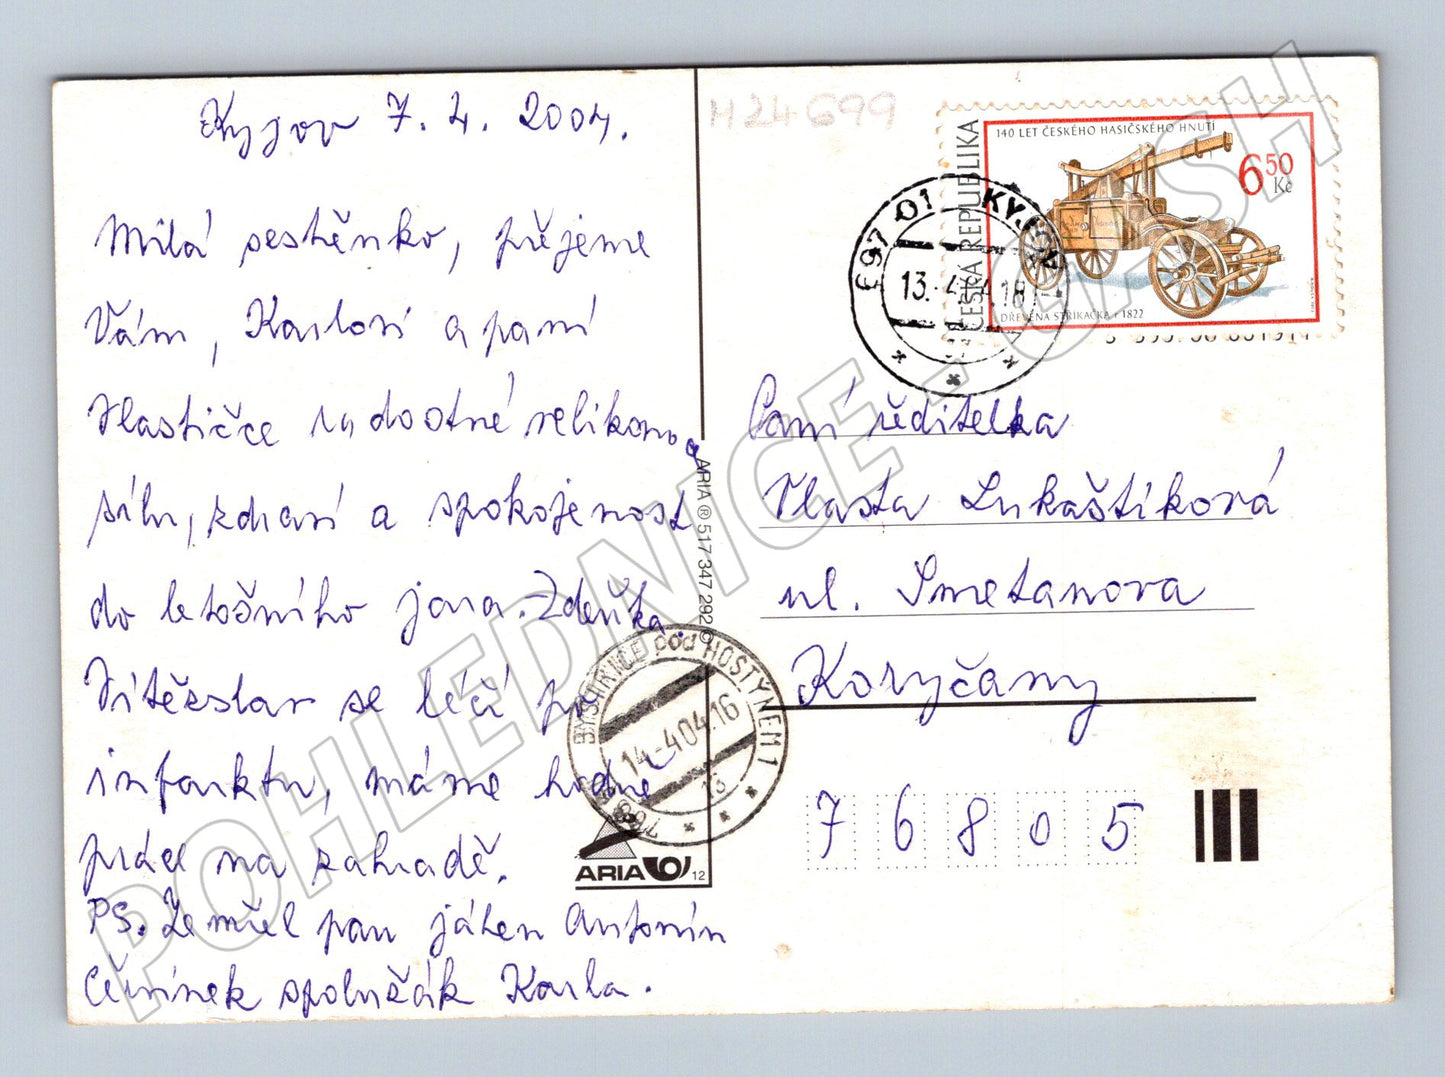 Kyjov 7. 4. 2004.
Milá sestěnko, přejeme
Vám, Karlovi a paní
Vlastičce radostné velikonoce
sílu, zdraví a spokojenost
do letošního jara. Zdeňka.
Vítězslav se léčí po
infarktu, máme hodně
práce na zahradě.
PS. Zemřel pan jáhen Antonín
spolužák Karla.
M24699
ČESKÁ REPUBLIKA
140 LET ČESKÉHO HASIČSKÉHO HNUTÍ
6 50
Kč
DŘEVĚNA STŘÍKAČKA r 1822
697 01 KYJOV
13.-4.
Paní ředitelka
Vlasta Lukaštíková
ul. Smetanova
Koryčany
76805
ARIA ® 517 347 292 ©
BYSTŘICE pod HOSTÝNEM 1
14.-4 04.16
ARIA
12
POHLEDNICE - CASH